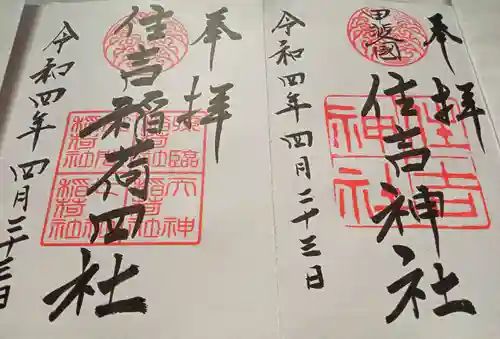 奉拝
甲斐國
住吉神社
令和四年四月二十三日
奉拝
住吉稲荷四社
令和四年四月二十三日